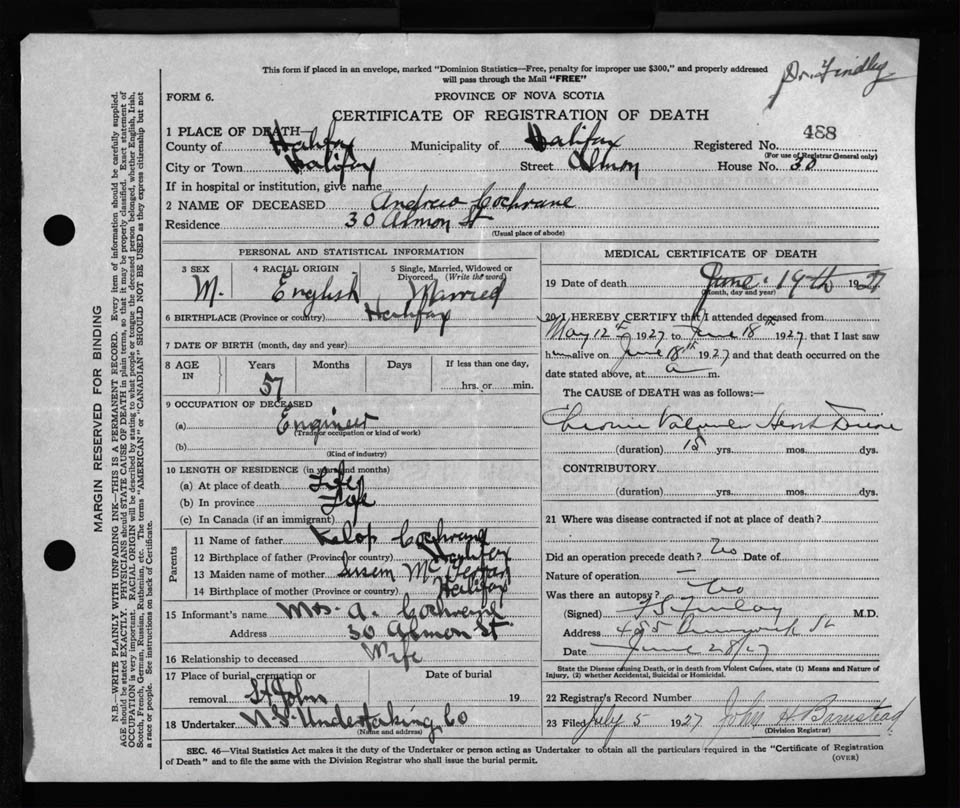 Dr. Findley
This form if placed in an envelope, marked "Dominion Statistics—Free, penalty for improper use $300," and properly addressed
will pass through the Mail "FREE"
FORM 6.
PROVINCE OF NOVA SCOTIA
CERTIFICATE OF REGISTRATION OF DEATH
1 PLACE OF DEATH—
County of Halifax Municipality of Halifax Registered No. 488
(For use of Registrar General only)
City or Town Halifax Street Almon House No. 30
If in hospital or institution, give name
2 NAME OF DECEASED Andrew Cochrane
Residence 30 Almon St
(Usual place of abode)
PERSONAL AND STATISTICAL INFORMATION
3 SEX 4 RACIAL ORIGIN 5 Single, Married, Widowed or
Divorced. (Write the word)
M. English Married
6 BIRTHPLACE (Province or country) Halifax
7 DATE OF BIRTH (month, day and year)
8 AGE IN Years Months Days If less than one day,
57 hrs. or min.
9 OCCUPATION OF DECEASED
(a) Engineer
(Trade, occupation or kind of work)
(b)
(Kind of industry)
10 LENGTH OF RESIDENCE (in years and months)
(a) At place of death Life
(b) In province Life
(c) In Canada (if an immigrant)
Parents
11 Name of father Cochrane
12 Birthplace of father (Province or country) Halifax
13 Maiden name of mother
14 Birthplace of mother (Province or country) Halifax
15 Informant's name Mrs. A. Cochrane
Address 30 Almon St.
16 Relationship to deceased Wife
17 Place of burial, cremation or Date of burial
removal St Johns 19
18 Undertaker N.S. Undertaking Co
(Name and address)
MEDICAL CERTIFICATE OF DEATH
19 Date of death June 19th 1927
(Month, day and year)
20 I HEREBY CERTIFY that I attended deceased from
May 12th 1927 to June 18th 1927 that I last saw
him alive on June 18th 1927 and that death occurred on the
date stated above, at a m.
The CAUSE of DEATH was as follows:—
Chronic Valvular Heart Disease
(duration) 15 yrs. mos. dys.
CONTRIBUTORY
(duration) yrs. mos. dys.
21 Where was disease contracted if not at place of death?
Did an operation precede death? No Date of
Nature of operation —
Was there an autopsy? No
(Signed) M.D.
Address St
Date June 28/27
State the Disease causing Death, or in death from Violent Causes, state (1) Means and Nature of
Injury, (2) whether Accidental, Suicidal or Homicidal.
22 Registrar's Record Number
23 Filed July 5 1927 John H Barnstead
(Division Registrar)
SEC. 46—Vital Statistics Act makes it the duty of the Undertaker or person acting as Undertaker to obtain all the particulars required in the "Certificate of Registration
of Death" and to file the same with the Division Registrar who shall issue the burial permit.
(OVER)
MARGIN RESERVED FOR BINDING
N.B.—WRITE PLAINLY WITH UNFADING INK—THIS IS A PERMANENT RECORD. Every item of information should be carefully supplied.
AGE should be stated EXACTLY. PHYSICIANS should STATE CAUSE OF DEATH in plain terms, so that it may be properly classified. Exact statement of
OCCUPATION is very important. RACIAL ORIGIN will be described by stating to what people or tongue the deceased person belonged, whether English, Irish,
Scotch, French, German, Russian, Ruthenian, etc. The terms "AMERICAN" or "CANADIAN" SHOULD NOT BE USED as they express citizenship but not
a race or people. See instructions on back of Certificate.